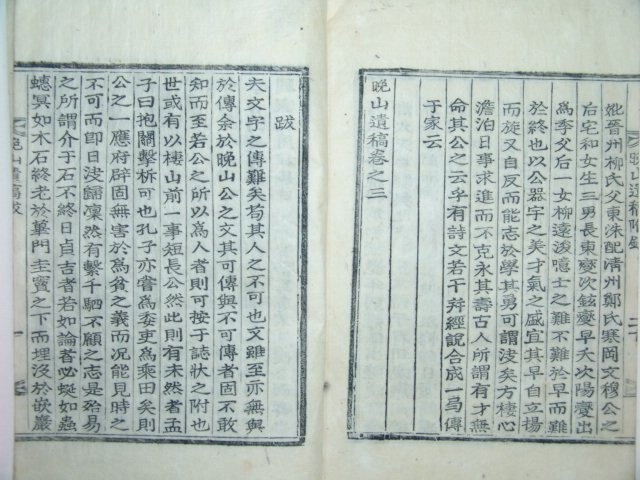 妣晉州柳氏父東洙配淸州鄭氏寒岡文穆公之
后宅和女生三男長東燮次鉉燮早夭次陽燮出
爲季父后一女柳遠浚噫士之難不難於早而難
於終也以公器宇之美才氣之盛宜其早自立揚
而旋又自反而能志於學其勇可謂決矣方棲心
澹泊日事求進而不克永其壽古人所謂有才無
命其公之云乎有詩文若干幷經說合成一局傳
于家云
晩山遺稿卷之三
跋
夫文字之傳難矣苟其人之不可也文雖至亦無與
於傳余於晩山公之文其可傳與不可傳者固不敢
知而至若公之所以爲人者則可按于誌狀之附也
世或有以棲山前一事短長公然此則有未然者孟
子曰抱關擊柝可也孔子亦嘗爲委吏爲乘田矣則
公之一應府辟固無害於爲貧之義而况能見時之
不可而卽日決歸凜然有繫千駟不顧之志是殆易
之所謂介于石不終日貞吉者若如論者必蜒如蟲
蟋冥如木石終老於蓽門圭竇之下而埋沒於嵌巖
晩山遺稿跋
一